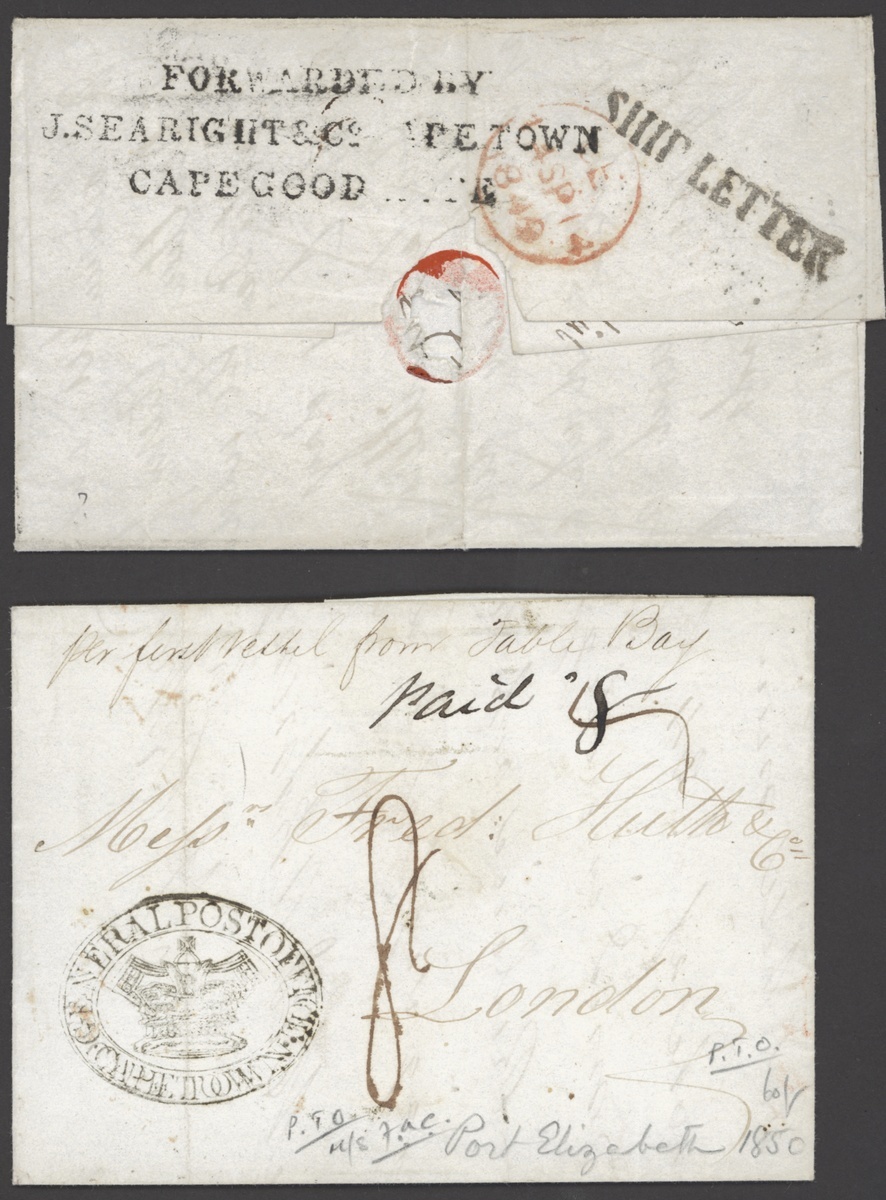 FORWARDED BY
J. SEARIGHT & Co CAPE TOWN
CAPE GOOD HOPE
SHIP LETTER
SP 14
1849
per first vessel from Table Bay
Paid 8
Messrs Fred: Huth & Co
8
London
GENERAL POST OFFICE
CAPE TOWN
P.T.O.
60/-
P.T.O.
Port Elizabeth 1850